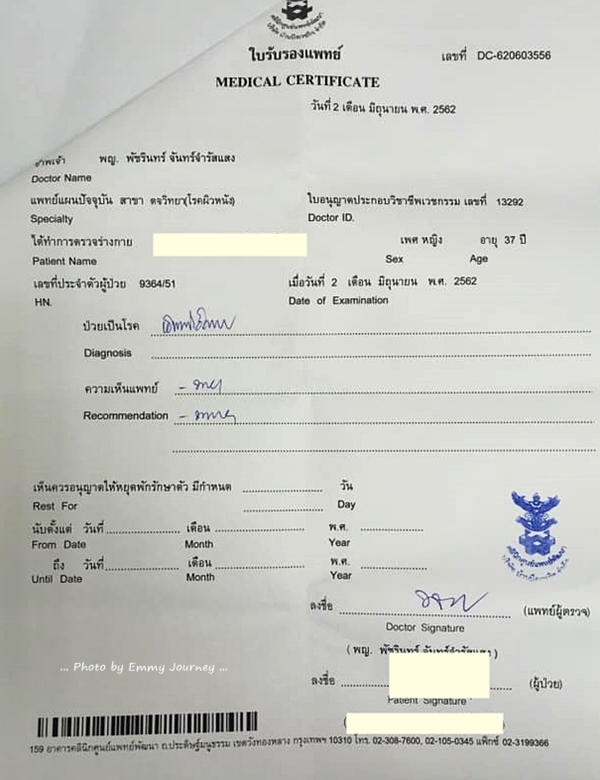 ใบรับรองแพทย์
เลขที่ DC-620603556
MEDICAL CERTIFICATE
วันที่ 2 เดือน มิถุนายน พ.ศ. 2562
ข้าพเจ้า พญ. พัชรินทร์ จันทร์จำรัสแสง
Doctor Name
แพทย์แผนปัจจุบัน สาขา ตจวิทยา(โรคผิวหนัง) ใบอนุญาตประกอบวิชาชีพเวชกรรม เลขที่ 13292
Specialty Doctor ID.
ได้ทำการตรวจร่างกาย เพศ หญิง อายุ 37 ปี
Patient Name Sex Age
เลขที่ประจำตัวผู้ป่วย 9364/51 เมื่อวันที่ 2 เดือน มิถุนายน พ.ศ. 2562
HN. Date of Examination
ป่วยเป็นโรค
Diagnosis
ความเห็นแพทย์ -
Recommendation -
เห็นควรอนุญาตให้หยุดพักรักษาตัว มีกำหนด วัน
Rest For Day
นับตั้งแต่ วันที่ เดือน พ.ศ.
From Date Month Year
ถึง วันที่ เดือน พ.ศ.
Until Date Month Year
ลงชื่อ (แพทย์ผู้ตรวจ)
Doctor Signature
( พญ. พัชรินทร์ จันทร์จำรัสแสง )
... Photo by Emmy Journey ...
ลงชื่อ (ผู้ป่วย)
Patient Signature
159 อาคารคลินิกศูนย์แพทย์พัฒนา ถ.ประดิษฐ์มนูธรรม เขตวังทองหลาง กรุงเทพฯ 10310 โทร. 02-308-7600, 02-105-0345 แฟ็กซ์ 02-3199366